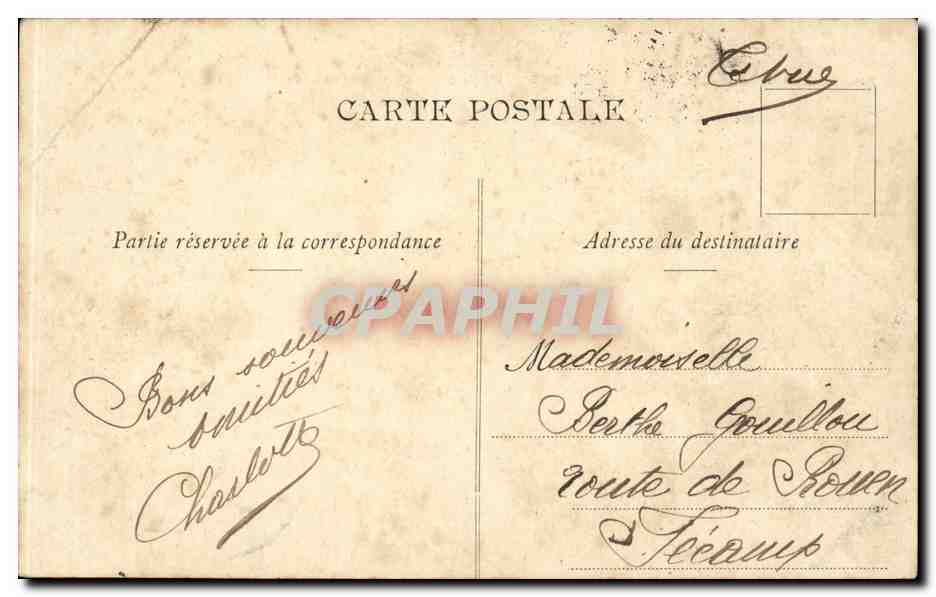 CARTE POSTALE
Partie réservée à la correspondance
Bons souvenirs
amitiés
Charlotte
Adresse du destinataire
Mademoiselle
Berthe Gouillou
route de Rouen
Fécamp
CPAPHIL